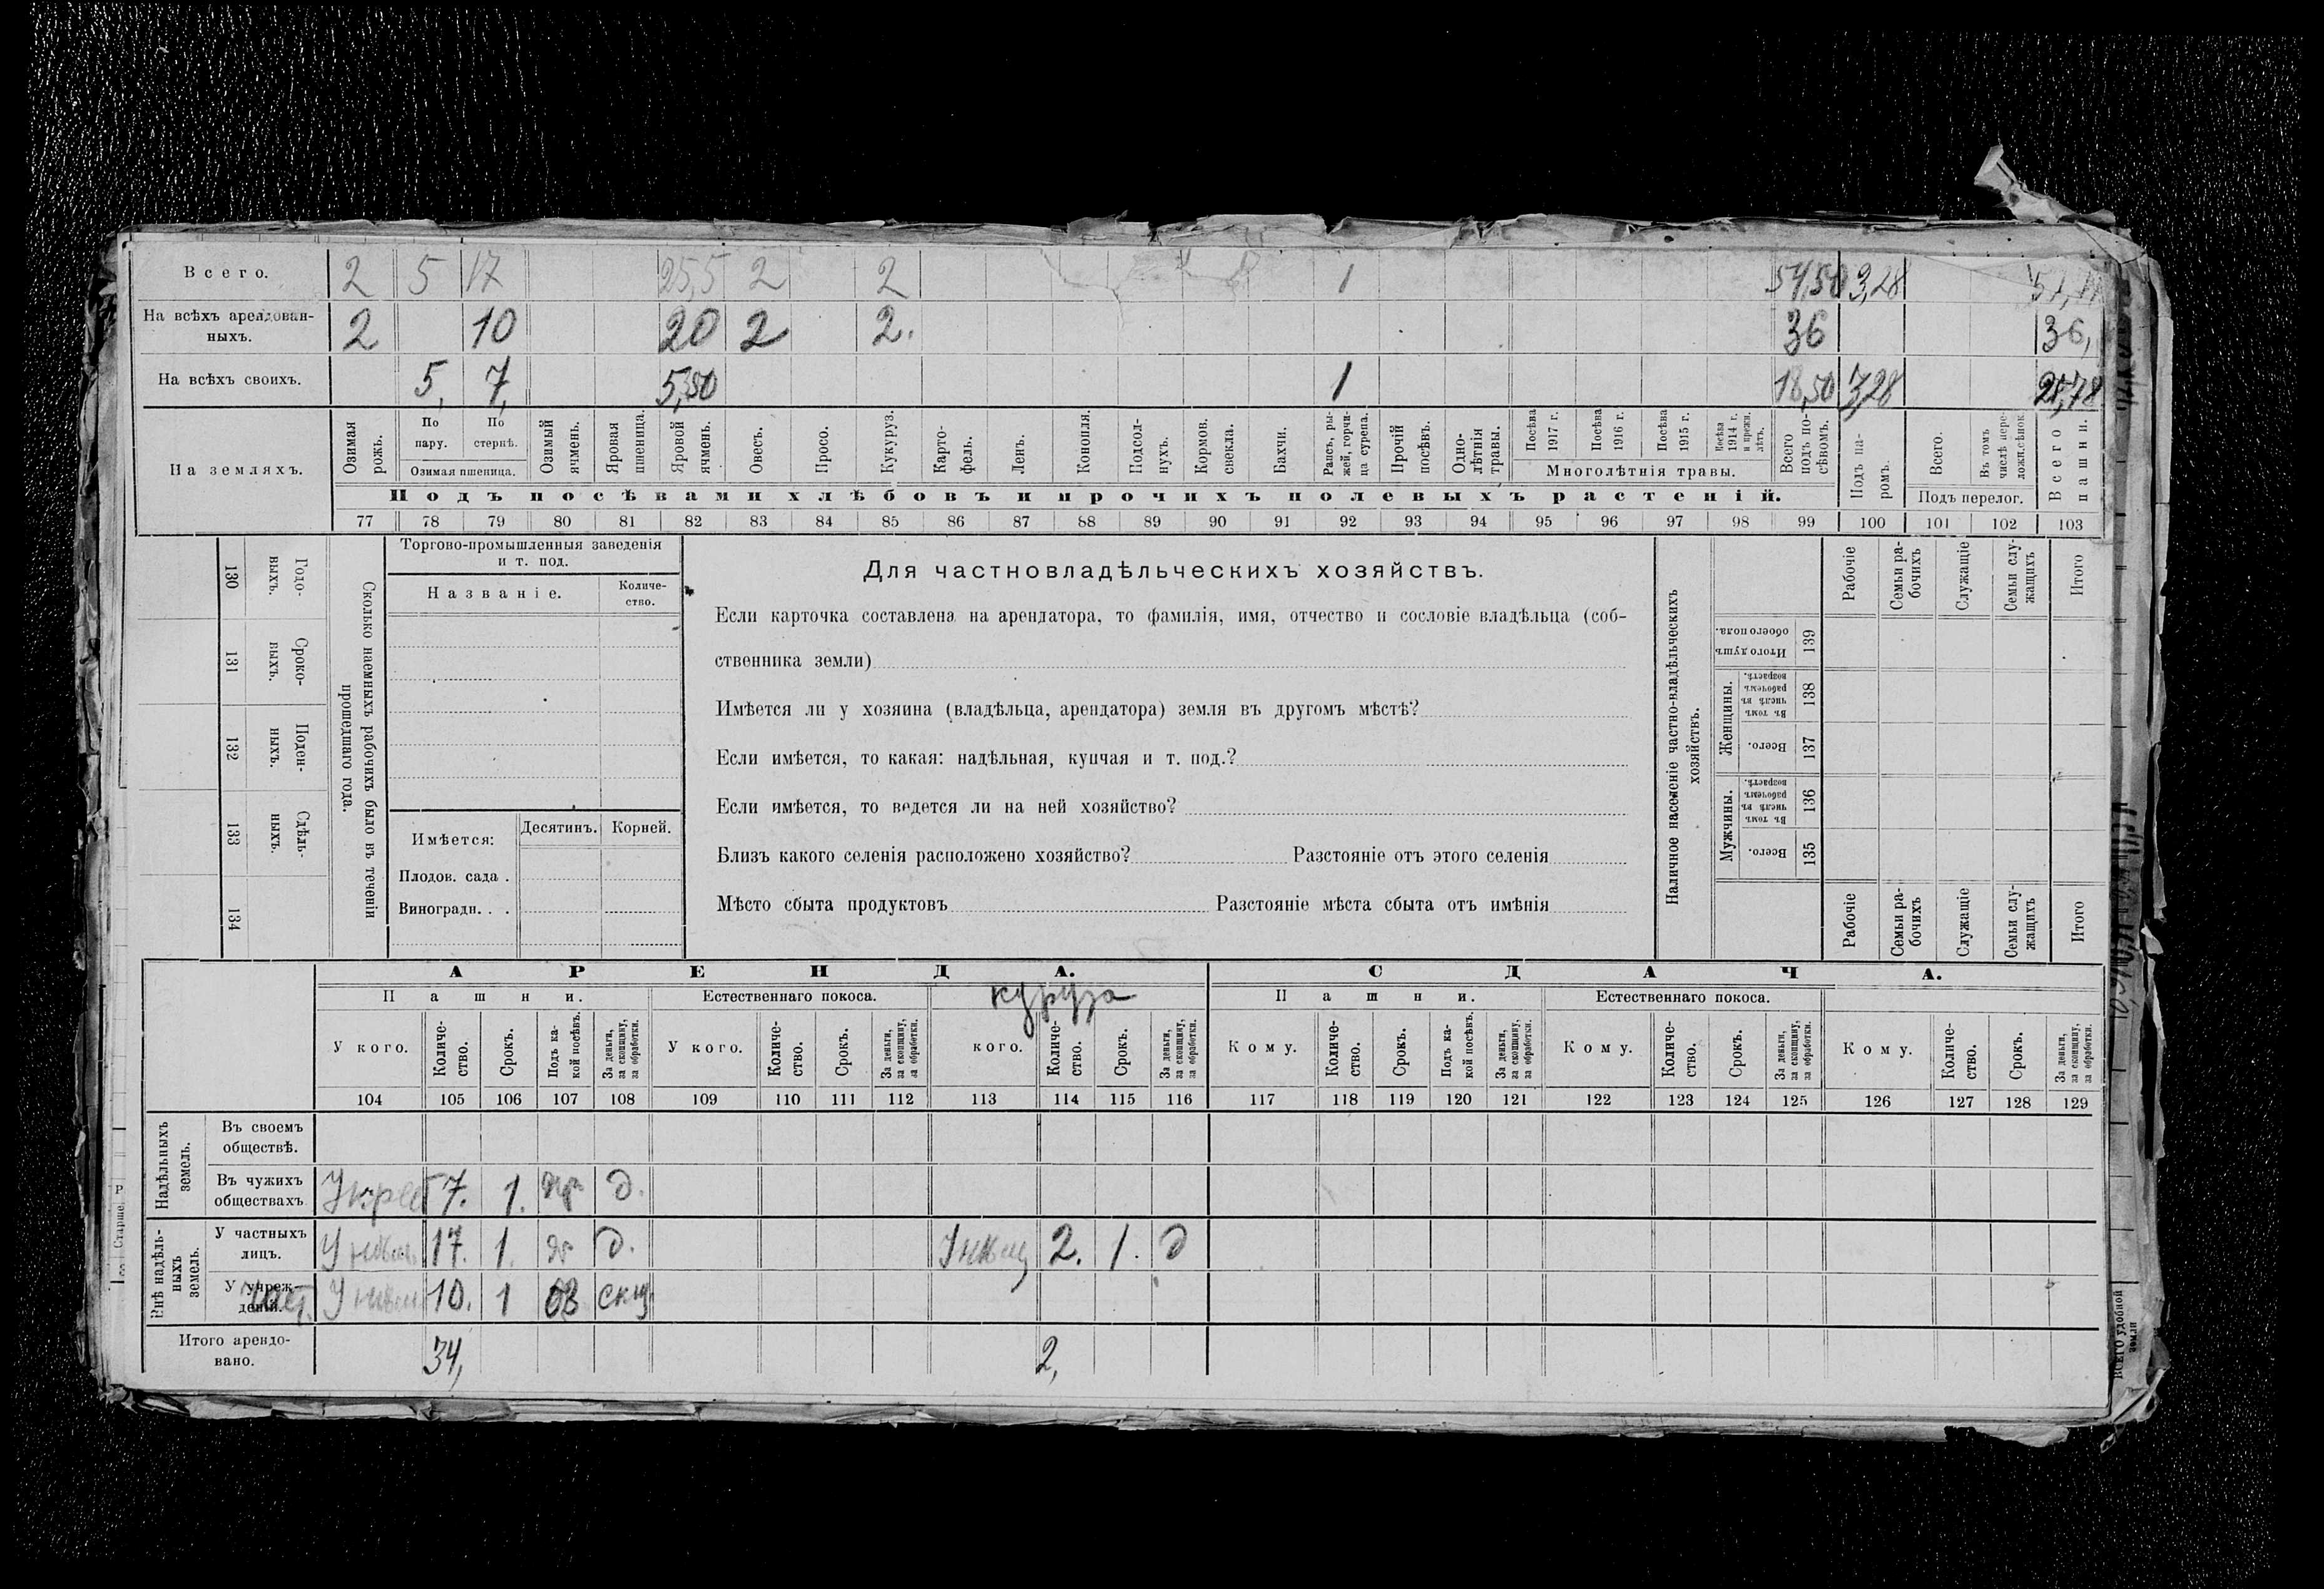 Всего. 2 5 17 25,5 2 2 1 54,50 3,28
На всѣхъ арендован-
ныхъ. 2 10 20 2 2. 36 36,
На всѣхъ своихъ. 5, 7, 5,50 1 18,50 3,28 21,78
На земляхъ.
Озимая рожь.
По пару.
По стернѣ.
Озимая пшеница.
Озимый ячмень.
Яровая пшеница.
Яровой ячмень.
Овесъ.
Просо.
Кукуруз.
Карто-
фель.
Ленъ.
Конопля.
Подсол-
нухъ.
Кормов.
свекла.
Бахчи.
Рапсъ, ры-
жей, горчи-
ца сурепа.
Прочій
посѣвъ.
Одно-
лѣтнія
травы.
Посѣва
1917 г.
Посѣва
1916 г.
Посѣва
1915 г.
Посѣва
1914 г.
и прежн.
лѣтъ.
Многолѣтнія травы.
Всего
подъ по-
сѣвомъ.
Подъ па-
ромъ.
Всего.
Въ томъ
числѣ перe-
ложн. сѣнок
Подъ перелог.
Всего
пашни.
Подъ посѣвами хлѣбовъ и прочихъ полевыхъ растеній.
77 78 79 80 81 82 83 84 85 86 87 88 89 90 91 92 93 94 95 96 97 98 99 100 101 102 103
130 Годо-
выхъ.
131 Сроко-
ныхъ.
132 Поден-
ныхъ.
133 Сдѣль-
ныхъ.
134
Сколько наемныхъ рабочихъ было въ теченіи
прошедшаго года.
Торгово-промышленныя заведенія
и т. под.
Названіе.
Количе-
ство.
Имѣется: Десятинъ. Корней.
Плодов. сада .
Виноградн. . .
Для частновладѣльческихъ хозяйствъ.
Если карточка составлена на арендатора, то фамилія, имя, отчество и сословіе владѣльца (соб-
ственника земли)
Имѣется ли у хозяина (владѣльца, арендатора) земля въ другомъ мѣстѣ?
Если имѣется, то какая: надѣльная, купчая и т. под.?
Если имѣется, то ведется ли на ней хозяйство?
Близъ какого селенія расположено хозяйство? Разстояніе отъ этого селенія
Мѣсто сбыта продуктовъ Разстояніе мѣста сбыта отъ имѣнія
Наличное населеніе частно-владѣльческихъ
хозяйствъ.
Итого душъ
обоего пола. 139
Женщины.
Въ томъ
числѣ въ
рабочемъ
возрастѣ. 138
Всего. 137
Мужчины.
Въ томъ
числѣ въ
рабочемъ
возрастѣ. 136
Всего. 135
Рабочіе
Семьи ра-
бочихъ
Служащіе
Семьи слу-
жащихъ
Итого
Рабочіе
Семьи ра-
бочихъ
Служащіе
Семьи слу-
жащихъ
Итого
АРЕНДА. СДАЧА.
Пашни. Естественнаго покоса. куруза Пашни. Естественнаго покоса.
У кого. Количе-
ство. Срокъ. Подъ ка-
кой посѣвъ. За деньги,
за скопщину,
за обработки.
У кого. Количе-
ство. Срокъ. За деньги,
за скопщину,
за обработки.
кого. Количе-
ство. Срокъ. За деньги,
за скопщину,
за обработки.
Кому. Количе-
ство. Срокъ. Подъ ка-
кой посѣвъ. За деньги,
за скопщину,
за обработки.
Кому. Количе-
ство. Срокъ. За деньги,
за скопщину,
за обработки.
Кому. Количе-
ство. Срокъ. За деньги,
за скопщину,
за обработки.
104 105 106 107 108 109 110 111 112 113 114 115 116 117 118 119 120 121 122 123 124 125 126 127 128 129
Надѣльныхъ
земель.
Въ своемъ
обществѣ.
Въ чужихъ
обществахъ 7. 1. д.
Внѣ надѣль-
ныхъ
земель.
У частныхъ
лицъ. 17. 1. д. 2. 1. д
У учреж-
деній. 10. 1 скщ.
Итого арендо-
вано. 34, 2,
Р
Старше
ВСЕГО удобной
земли